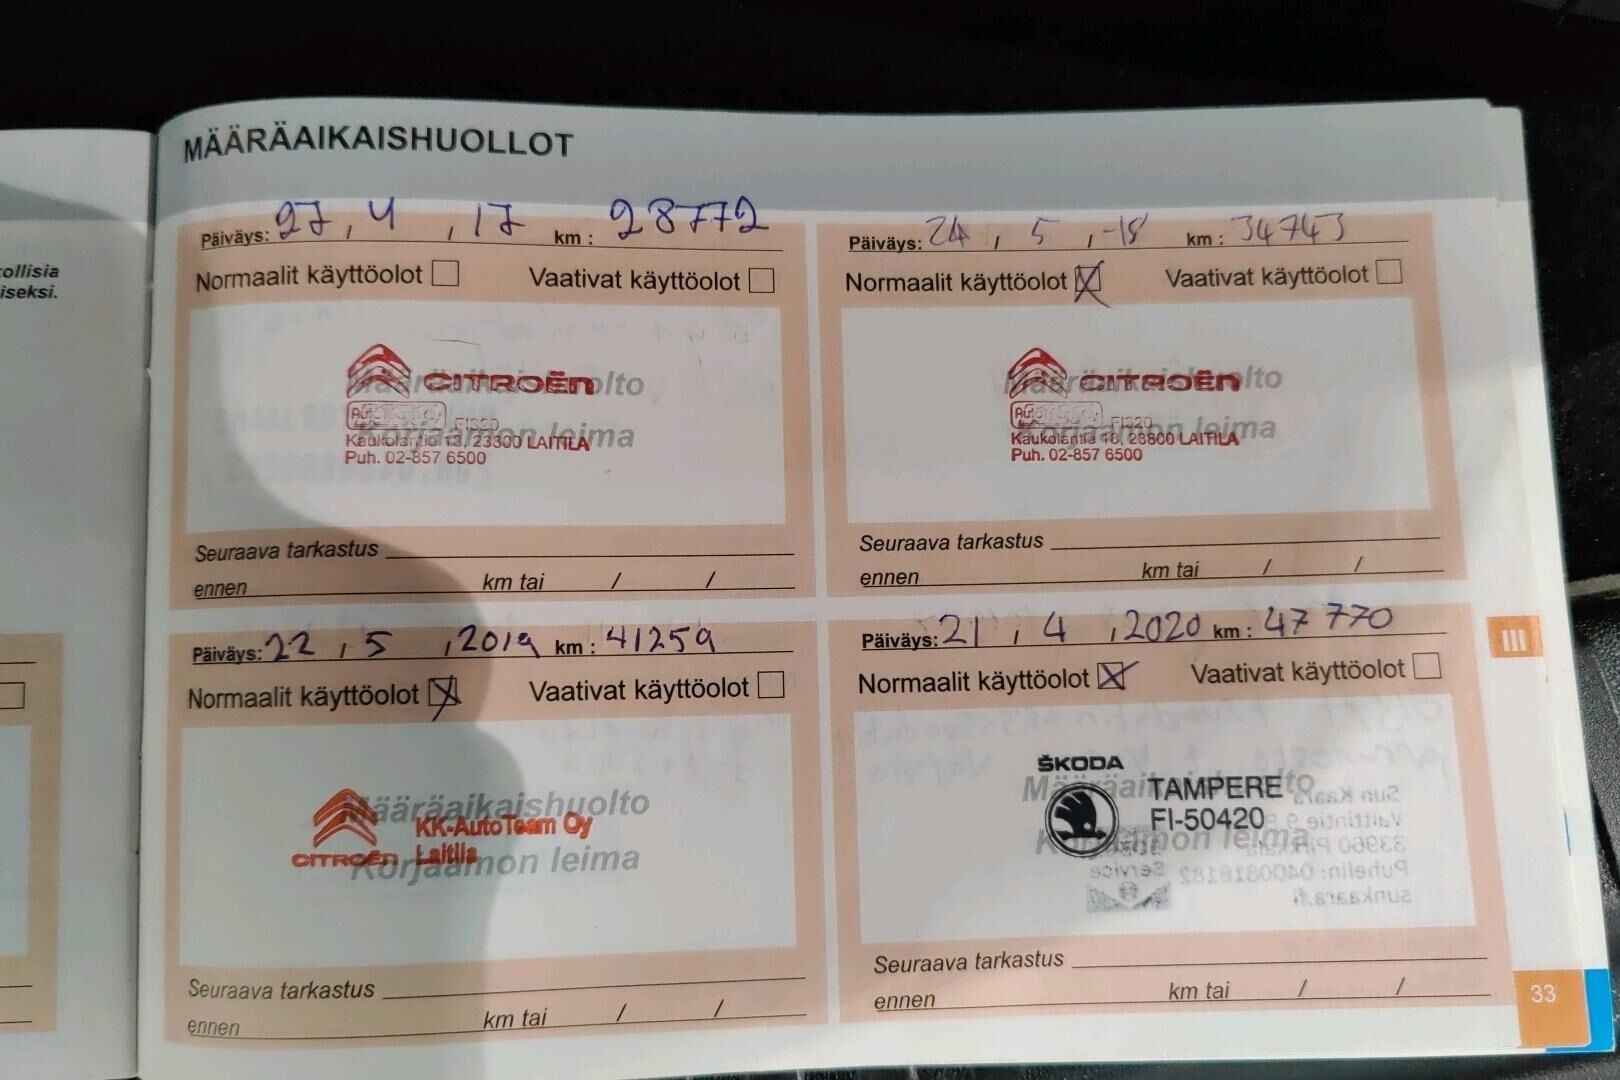 MÄÄRÄAIKAISHUOLLOT
ollisia
iseksi.
Päiväys: 27, 4, 17 km: 28772
Normaalit käyttöolot Vaativat käyttöolot
Määräaikaishuolto
Korjaamon leima
CITROËN
FI320
Kaukolantie 13, 23800 LAITILA
Puh. 02-857 6500
Seuraava tarkastus
ennen km tai / /
Päiväys: 24, 5, -18 km: 34743
Normaalit käyttöolot X Vaativat käyttöolot
Määräaikaishuolto
Korjaamon leima
CITROËN
FI320
LAITILA
Puh. 02-857 6500
Seuraava tarkastus
ennen km tai / /
Päiväys: 22, 5, 2019 km: 41259
Normaalit käyttöolot X Vaativat käyttöolot
Määräaikaishuolto
Korjaamon leima
CITROËN
KK-AutoTeam Oy
Laitila
Seuraava tarkastus
ennen km tai / /
Päiväys: 21, 4, 2020 km: 47 770
Normaalit käyttöolot X Vaativat käyttöolot
Määräaikaishuolto
Korjaamon leima
ŠKODA
TAMPERE
FI-50420
Service
Sun Kaara
33960 Pirkkala
Puhelin: 0400818182
sunkaara.fi
Seuraava tarkastus
ennen km tai / /
III
33